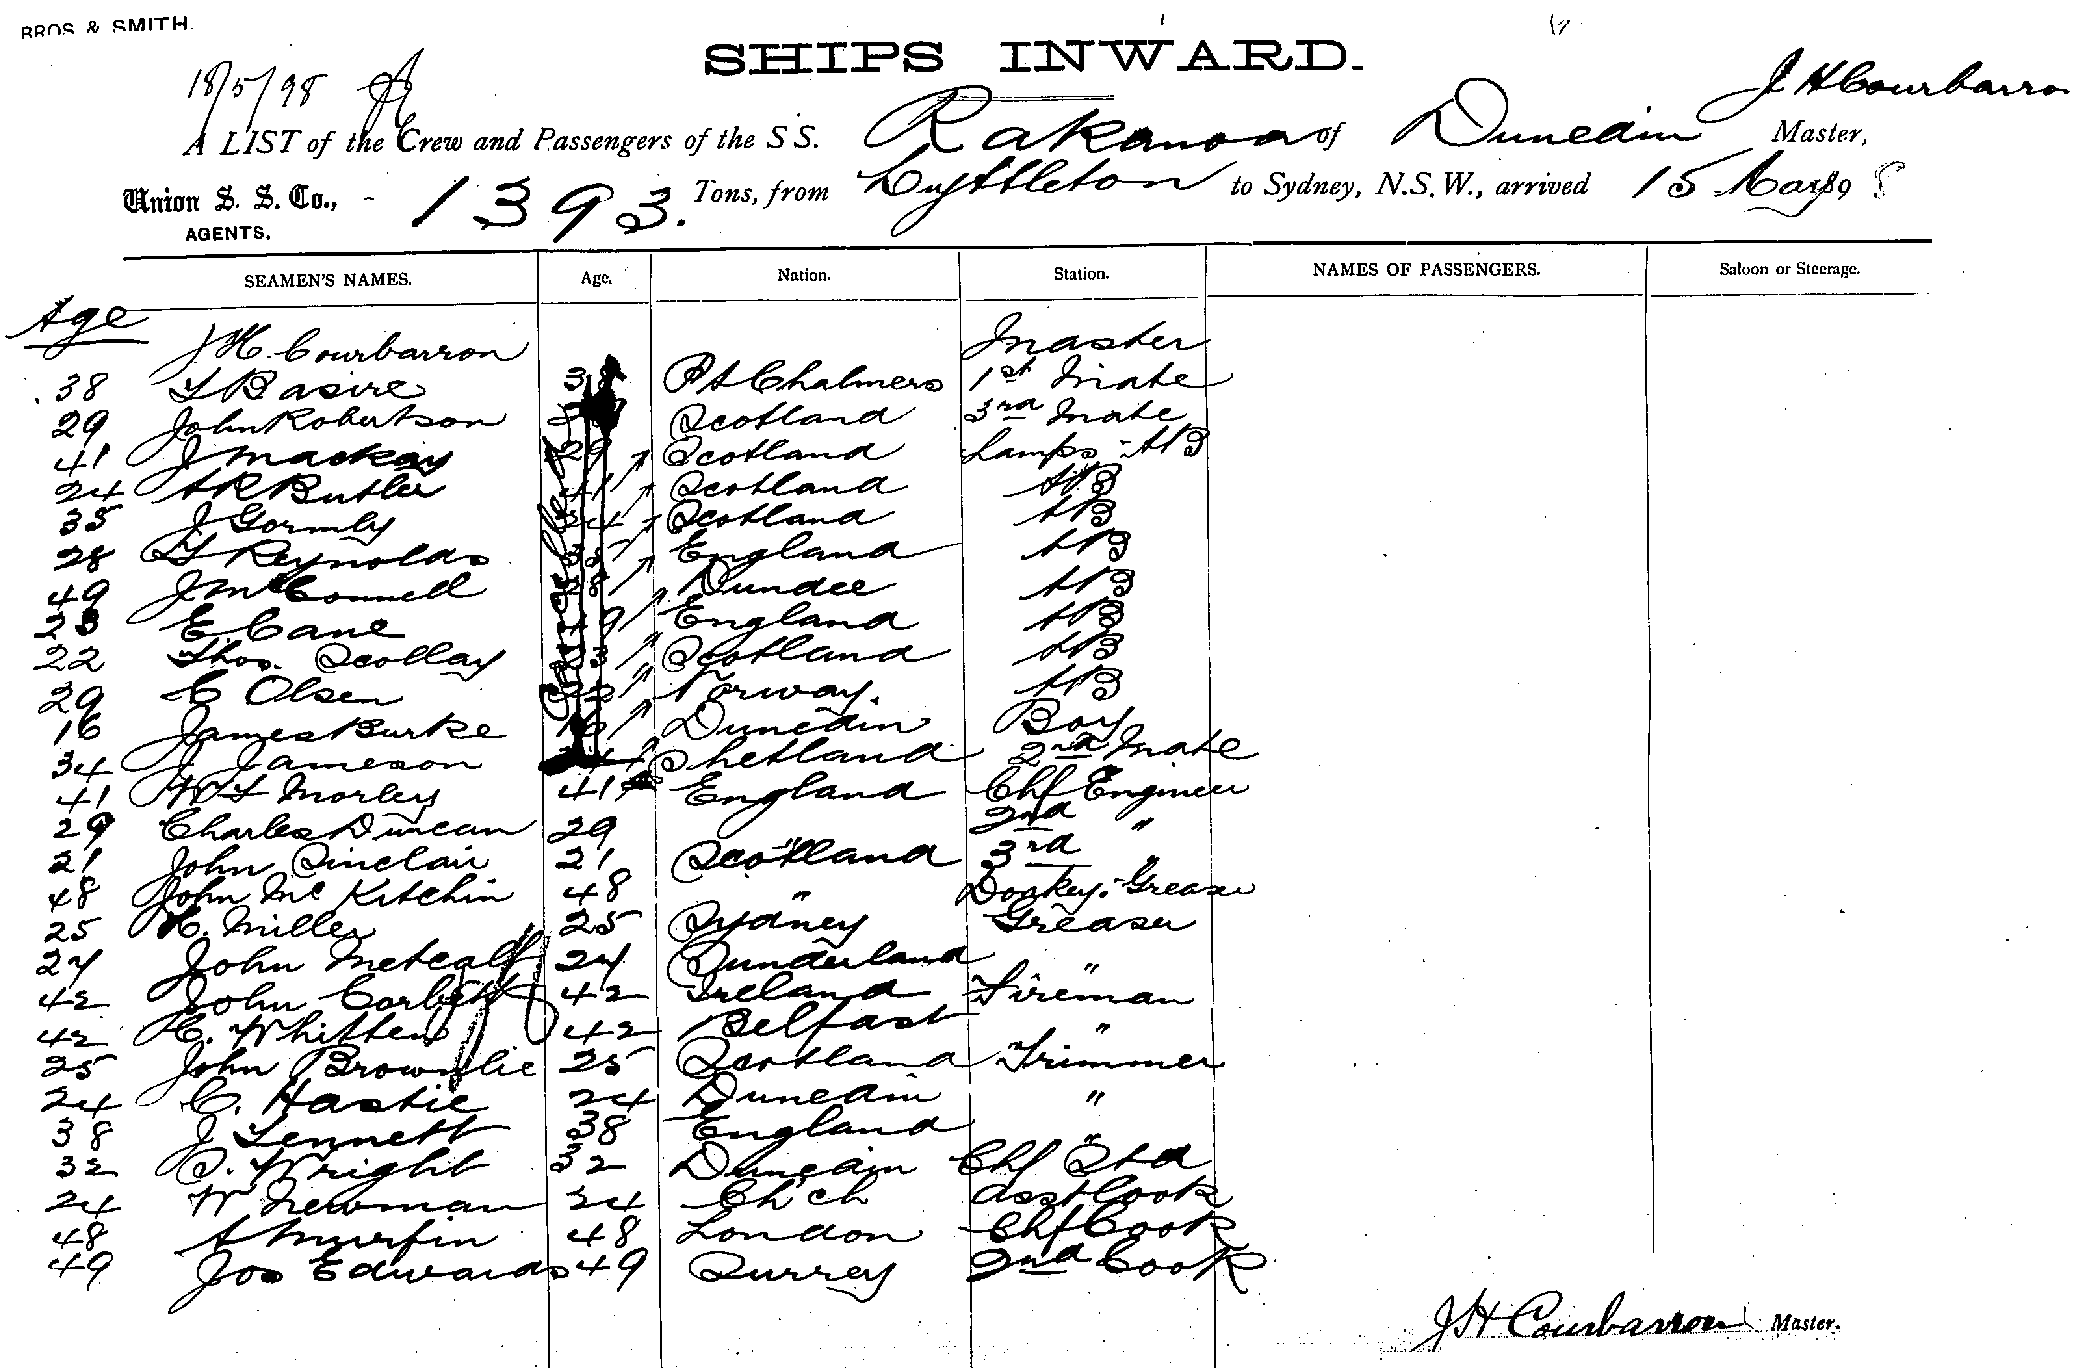 BROS & SMITH.
SHIPS INWARD.
18/5/98
J H Courbarron
A LIST of the Crew and Passengers of the S S. Rakanoa of Dunedin Master,
Union S. S. Co., - 1393. Tons, from Lyttleton to Sydney, N.S.W., arrived 15 May 1898
AGENTS.
SEAMEN'S NAMES. Age. Nation. Station. NAMES OF PASSENGERS. Saloon or Steerage.
Age
J H. Courbarron Master
38 T Basire 38 Pt Chalmers 1st Mate
29 John Robertson Scotland 3rd Mate
41 J Mackay 29 Scotland Lamps - AB
24 A R Butler 41 Scotland AB
35 J Gormly 24 Scotland AB
28 T Reynolds 35 England AB
49 J McConnell 28 Dundee AB
23 E. Cane 49 England AB
22 Thos. Scollay 23 Scotland AB
29 C Olsen 22 Norway. AB
16 James Burke 16 Dunedin Boy
34 J Jameson 34 Shetland 2nd Mate
41 W T Morley 41 England Chf Engineer
29 Charles Duncan 29 " 2nd "
21 John Sinclair 21 Scotland 3rd "
48 John McKitchin 48 " Donkey. Greaser
25 H. Miller 25 Sydney Greaser
27 John Metcalf 27 Sunderland "
42 John Corbett 42 Ireland Fireman
42 C. Whitten 42 Belfast "
25 John Brownlie 25 Scotland Trimmer
24 C. Hastie 24 Dunedin "
38 J Tennett 38 England "
32 S. Wright 32 Dunedin Chf Std
24 W Newman 24 Ch'ch Asst Cook
48 A Murfin 48 London Chf Cook
49 Jos Edwards 49 Surrey 2nd Cook
J H Courbarron Master.